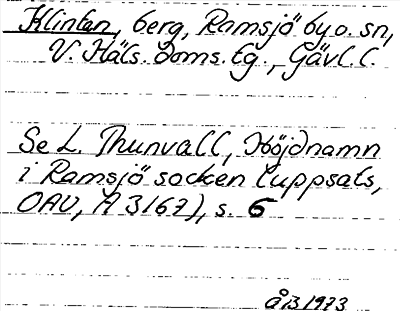 Klinten, berg, Ramsjö by o. sn,
V. Häls. doms. tg., Gävl. l.
Se L. Thunvall, Höjdnamn
i Ramsjö socken (uppsats,
OAU, A 3167), s. 6
ÅB 1973